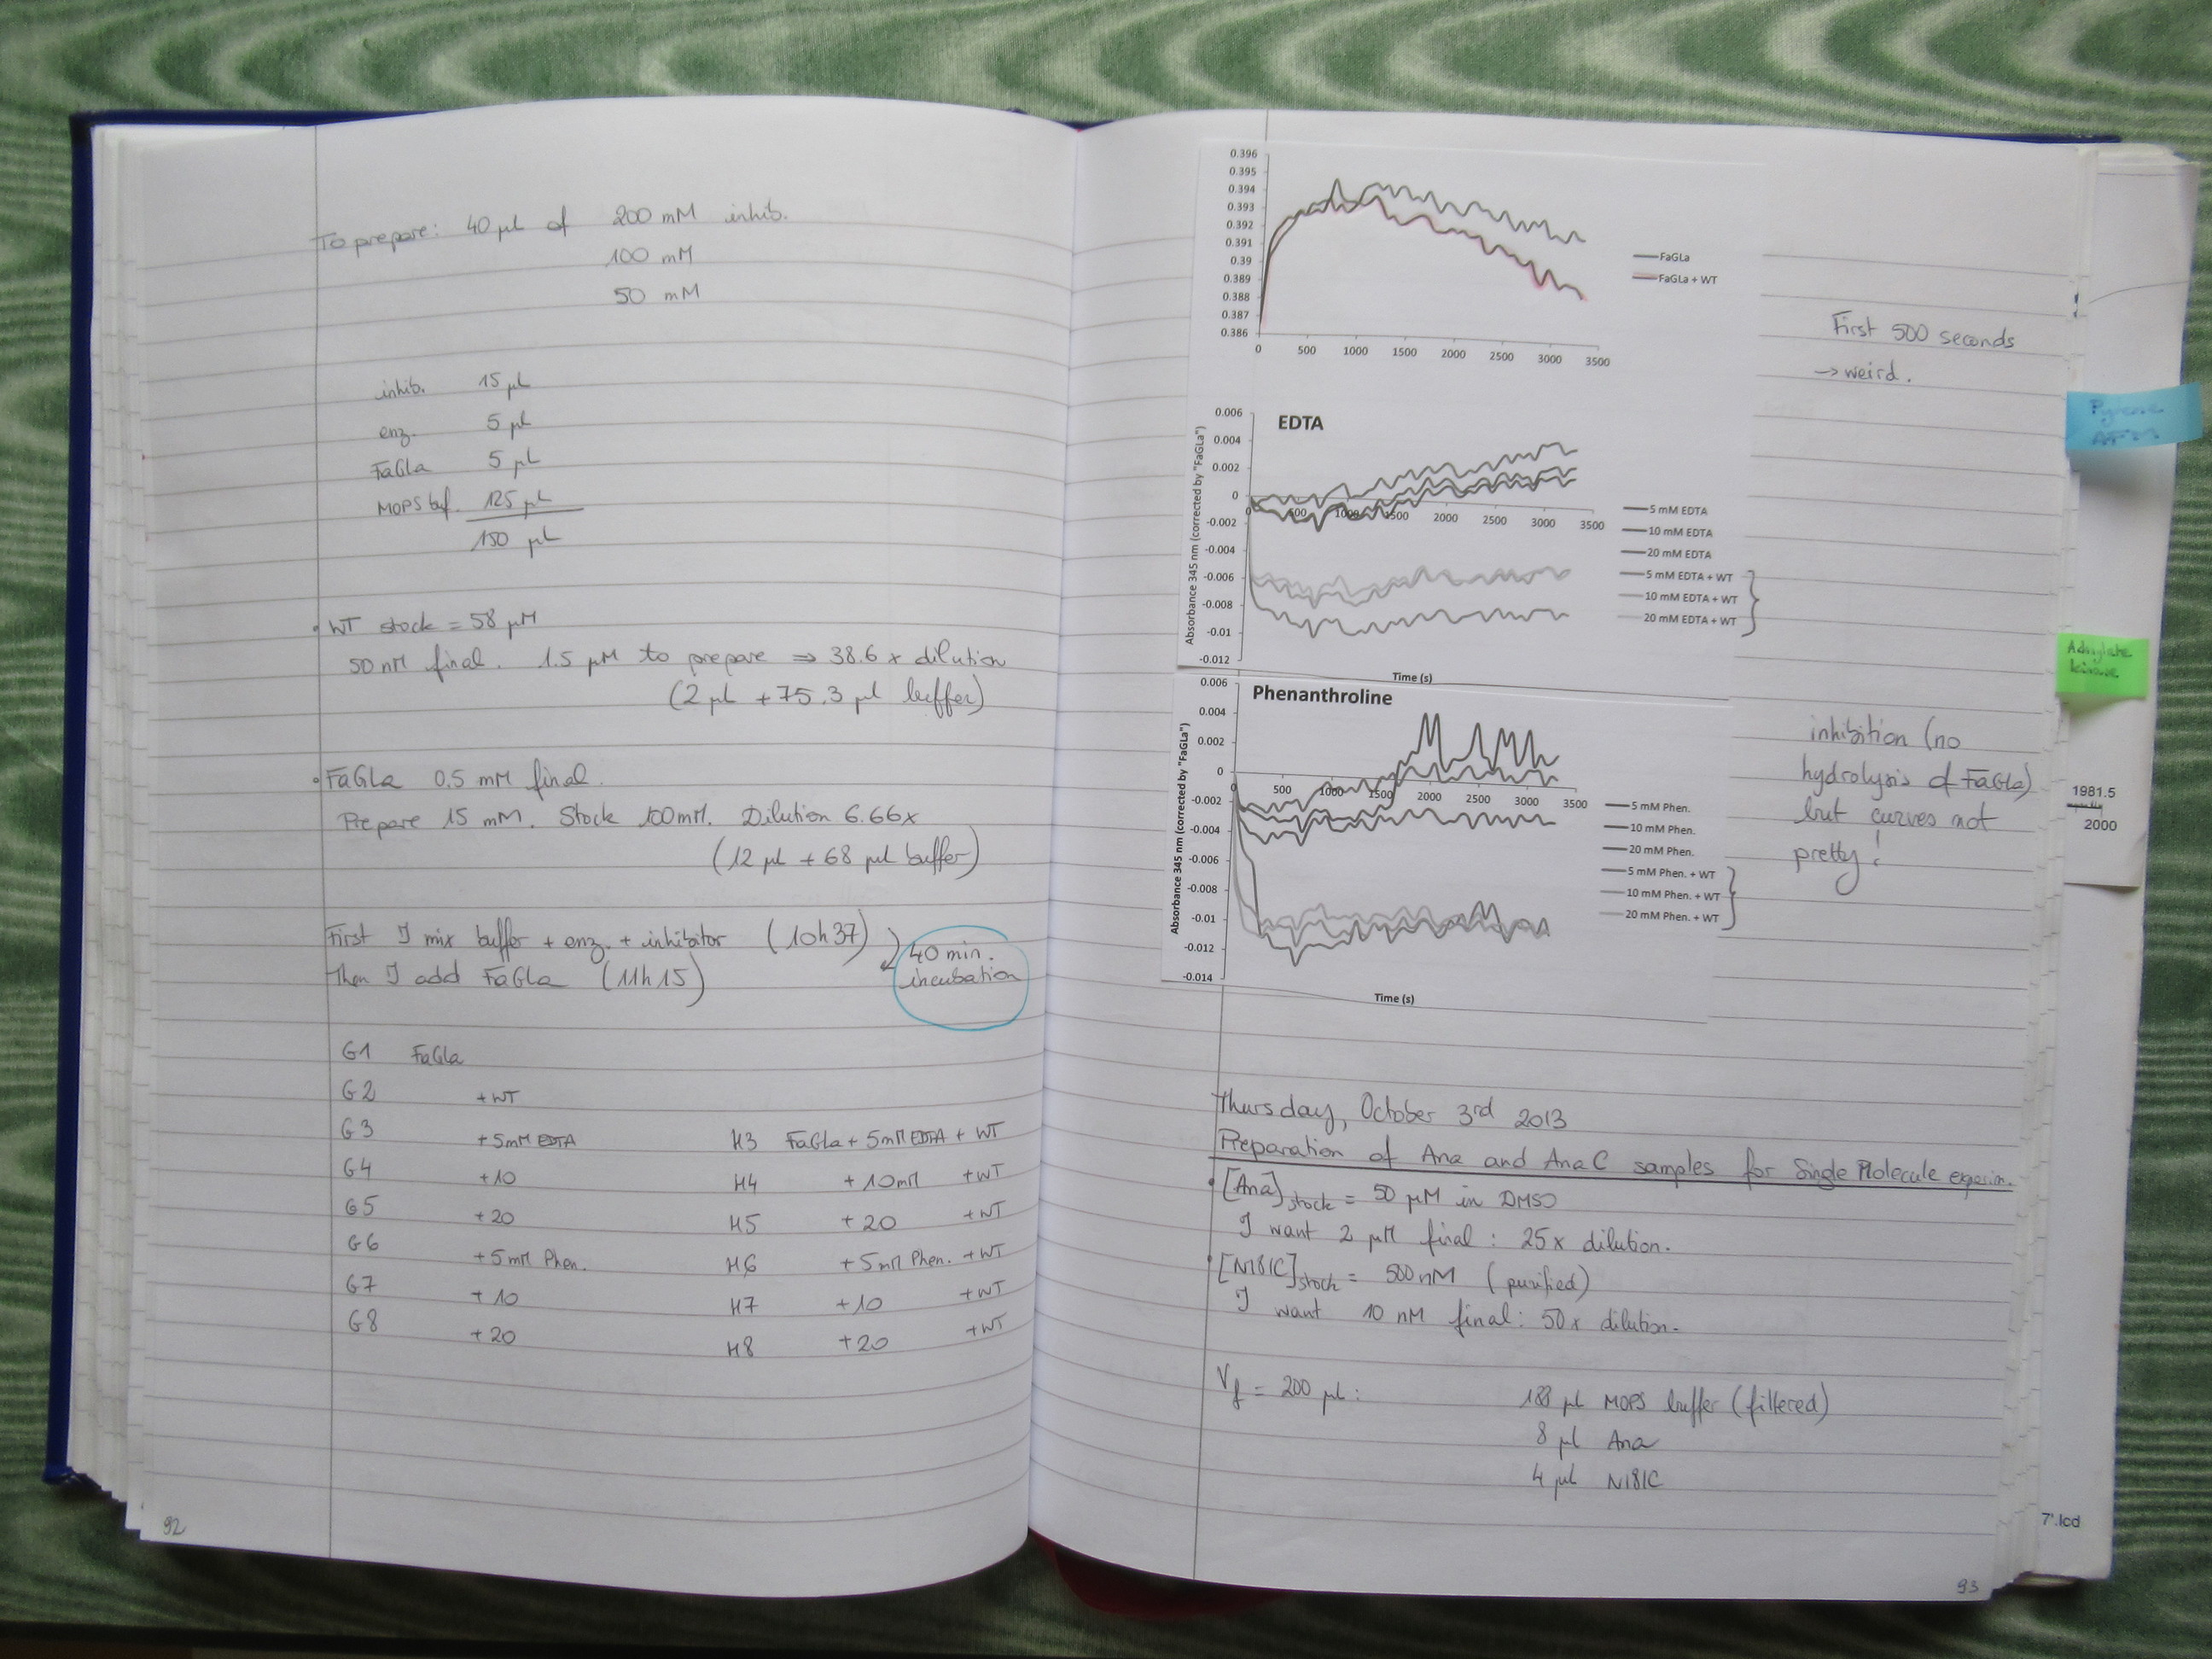 To prepare: 40 µl of 200 mM inhib.
100 mM
50 mM
inhib. 15 µl
enz. 5 µl
FaGLa 5 µl
MOPS buf. 125 µl
150 µl
• WT stock = 58 µM
50 nM final. 1.5 µM to prepare ⇒ 38.6 x dilution
(2 µl + 75.3 µl buffer)
• FaGLa 0.5 mM final.
Prepare 15 mM. Stock 100mM. Dilution 6.66x
(12 µl + 68 µl buffer)
First I mix buffer + enz. + inhibitor (10h37)
Then I add FaGLa (11h15)
40 min.
incubation
G1 FaGLa
G2 + WT
G3 + 5mM EDTA H3 FaGLa + 5mM EDTA + WT
G4 + 10 H4 + 10mM + WT
G5 + 20 H5 + 20 + WT
G6 + 5mM Phen. H6 + 5mM Phen. + WT
G7 + 10 H7 + 10 + WT
G8 + 20 H8 + 20 + WT
92
0.396
0.395
0.394
0.393
0.392
0.391
0.39
0.389
0.388
0.387
0.386
0 500 1000 1500 2000 2500 3000 3500
FaGLa
FaGLa + WT
First 500 seconds
→ weird.
EDTA
Absorbance 345 nm (corrected by "FaGLa")
0.006
0.004
0.002
0
-0.002
-0.004
-0.006
-0.008
-0.01
-0.012
0 500 1000 1500 2000 2500 3000 3500
Time (s)
5 mM EDTA
10 mM EDTA
20 mM EDTA
5 mM EDTA + WT
10 mM EDTA + WT
20 mM EDTA + WT
Phenanthroline
Absorbance 345 nm (corrected by "FaGLa")
0.006
0.004
0.002
0
-0.002
-0.004
-0.006
-0.008
-0.01
-0.012
-0.014
0 500 1000 1500 2000 2500 3000 3500
Time (s)
5 mM Phen.
10 mM Phen.
20 mM Phen.
5 mM Phen. + WT
10 mM Phen. + WT
20 mM Phen. + WT
inhibition (no
hydrolysis of FaGLa)
but curves not
pretty!
Thursday, October 3rd 2013
Preparation of Ana and AnaC samples for Single Molecule experim.
• [Ana]stock = 50 µM in DMSO
I want 2 µM final : 25x dilution.
• [N181C]stock = 500 nM (purified)
I want 10 nM final : 50x dilution.
Vf = 200 µl : 188 µl MOPS buffer (filtered)
8 µl Ana
4 µl N181C
93
Pyrene
AFM
Adenylate
kinase
1981.5
2000
7'.lcd